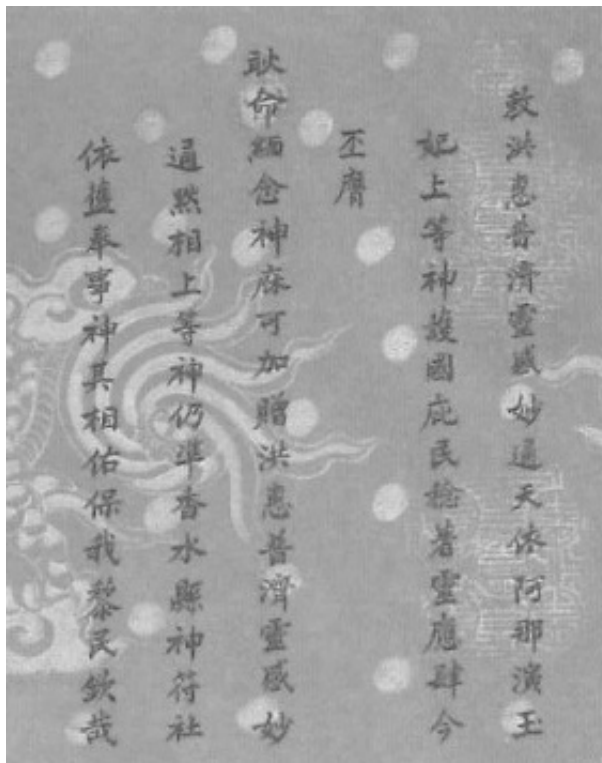 敕洪惠普濟靈感妙通天依阿那演玉
妃上等神護國庇民稔著靈應肆今
丕膺
耿命緬念神庥可加贈洪惠普濟靈感妙
通默相上等神仍準香水縣神符社
依舊奉事神其相佑保我黎民欽哉